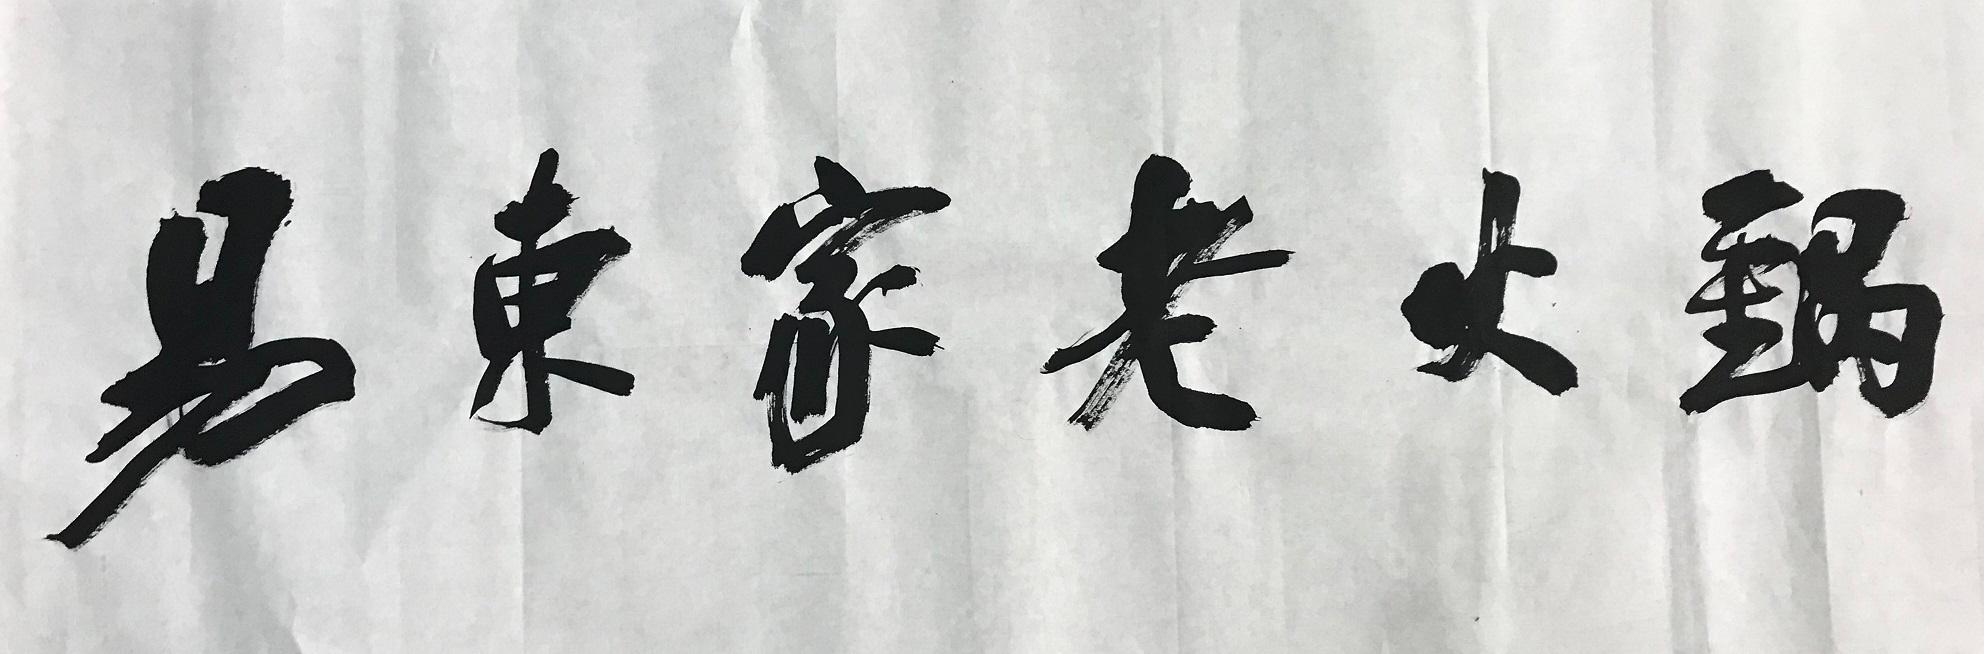 易東家老火鍋